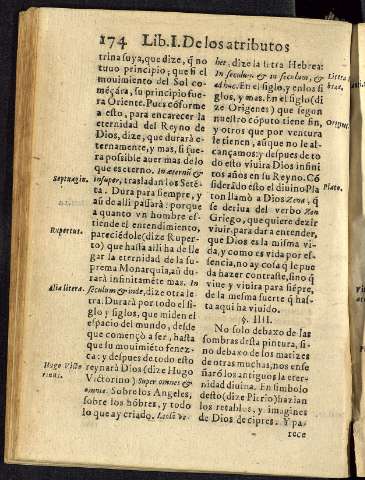 174 Lib. I. De los atributos
trina suya, que dize, q̃ no
tuuo principio; que si el
mouimiento del Sol co-
mẽçára, su principio fue-
ra Oriente. Pues cõforme
a esto, para encarecer la
eternidad del Reyno de
Dios, dize, que durará e-
ternamente, y mas, si fue-
ra possible auer mas de lo
que es eterno. In æternũ &
Septuagin.
insuper, trasladan los Setẽ-
ta. Dura para siempre, y
aũ de alli passará: porque
a quanto vn hombre es-
tiende el entendimiento,
Rupertus.
pareciẽdole (dize Ruper-
to) que hasta alli ha de lle-
gar la eternidad de la su-
prema Monarquia, aũ du-
rará infinitamẽte mas. In
Alia litera.
sæculum & inde, dize otra le-
tra. Durará por todo el si-
glo y siglos, que miden el
espacio del mundo, desde
que començò a ser, hasta
que su mouimiẽto fenez-
ca: y despues de todo esto
Hugo Victorinus.
reynará Dios (dize Hugo
Victorino) Super omnes &
omnia. Sobre los Angeles,
sobre los hõbres, y todo
lo que ay criado.
her, dize la letra Hebrea:
In sæculum & in sæculum, &
adhuc. En el siglo, y en los si
glos, y mas. En el siglo (di
ze Origenes) que segun
Origin.
nuestro cõputo tiene fin,
y otros que por ventura
le tienen, aũque no le al-
cançamos: y despues de to
do esto viuirá Dios infini
tos años en su Reyno. Cõ
siderãdo esto el diuino Pla
Plato.
ton llamò a Dios Zena, q̃
se deriua del verbo Zen
Griego, que quiere dezir
viuir. para dar a entender,
que Dios es la misma vi-
da, y como es vida por es-
sencia, no ay cosa q̃ le pue
da hazer contraste, sino q̃
viue y viuirá para siẽpre,
de la mesma suerte q̃ has-
ta aqui ha viuido.
§. IIII.
No solo debaxo de las
sombras desta pintura, si-
no debaxo de los matizes
de otras muchas, nos ense
ñarõ los antiguos la eter-
nidad diuina. En simbolo
desto (dize Pierio) hazian
los retablos, y imagines
de Dios de cipres. Y pa-
rece